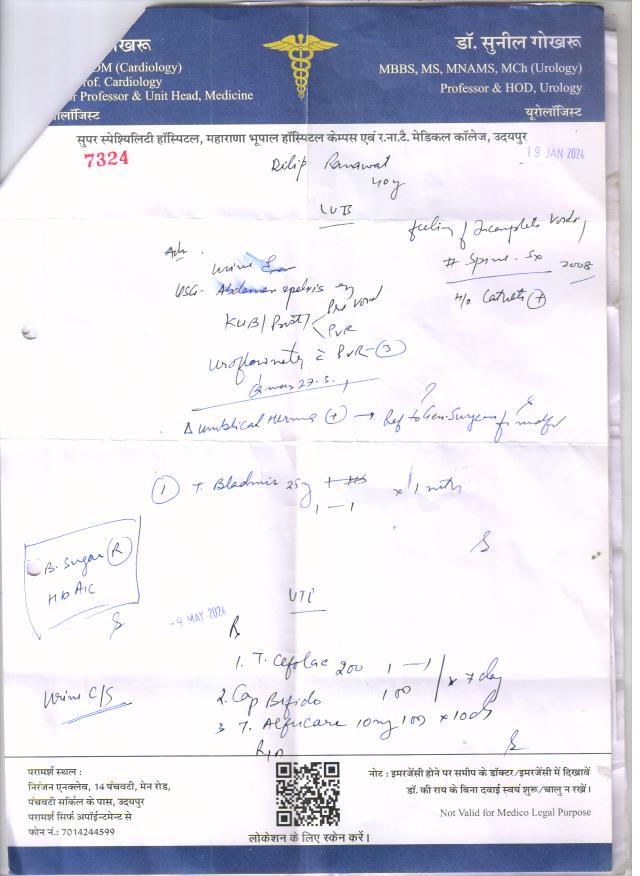 ोखरू
DM (Cardiology)
rof. Cardiology
r Professor & Unit Head, Medicine
ोलॉजिस्ट
डॉ. सुनील गोखरू
MBBS, MS, MNAMS, MCh (Urology)
Professor & HOD, Urology
यूरोलॉजिस्ट
सुपर स्पेश्यिलिटी हॉस्पिटल, महाराणा भूपाल हॉस्पिटल केम्पस एवं र.ना.टै. मेडिकल कॉलेज, उदयपुर
7324
19 JAN 2024
Dilip Ranawat
40y
feeling of Incomplete Voiding
# Spine Sx 2008
H/o Catheter +
Adv.
Urine
USG- Abdomen
KUB/Prost/
Pre Void
PVR
Uroflowmetry c̄ PVR-3
Qmax 27.3
Δ Umbilical Hernia + → Ref to Gen. Surgeon for
1 T. Bladmir 25mg x 1 mth
1-1
B. Sugar R
HbA1C
-9 MAY 2024
UTI
R
1. T. Cefolac 200 1-1
2. Cap Bifido 1 OD x 7 day
3 T. Alfucare 10mg 1 OD x 10d
Urine C/S
परामर्श स्थल :
निरंजन एनक्लेव, 14 पंचवटी, मेन रोड,
पंचवटी सर्किल के पास, उदयपुर
परामर्श सिर्फ अपॉईन्टमेन्ट से
फोन नं.: 7014244599
लोकेशन के लिए स्केन करें।
नोट : इमरजेंसी होने पर समीप के डॉक्टर/इमरजेंसी में दिखावें
डॉ. की राय के बिना दवाई स्वयं शुरू/चालु न रखें।
Not Valid for Medico Legal Purpose